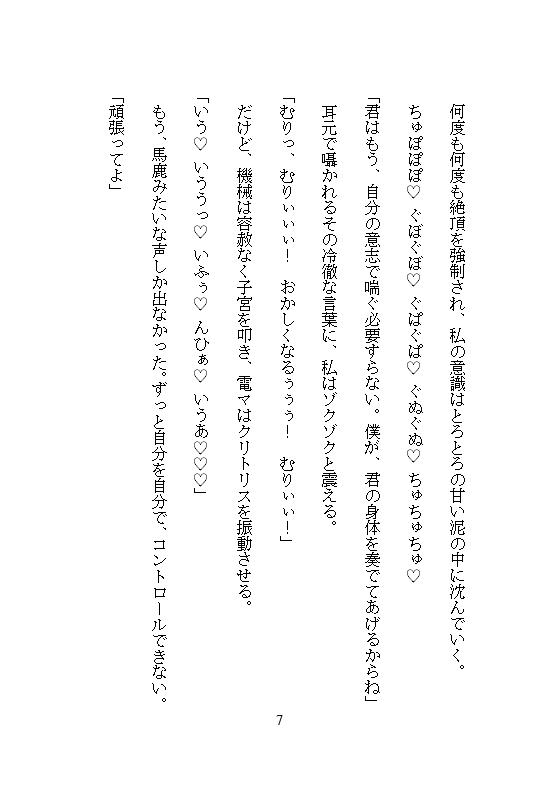 何度も何度も絶頂を強制され、私の意識はとろとろの甘い泥の中に沈んでいく。
ちゅぽぽぽ♡ ぐぼぐぼ♡ ぐぱぐぱ♡ ぐぬぐぬ♡ ちゅちゅちゅ♡
「君はもう、自分の意志で喘ぐ必要すらない。僕が、君の身体を奏でてあげるからね」
耳元で囁かれるその冷徹な言葉に、私はゾクゾクと震える。
「むりっ、むりぃぃぃ！　おかしくなるぅぅぅ！　むりぃぃ！」
だけど、機械は容赦なく子宮を叩き、電マはクリトリスを振動させる。
「いう♡ いううっ♡ いふぅ♡ んひぁ♡ いうあ♡♡♡」
もう、馬鹿みたいな声しか出なかった。ずっと自分を自分で、コントロールできない。
「頑張ってよ」
7